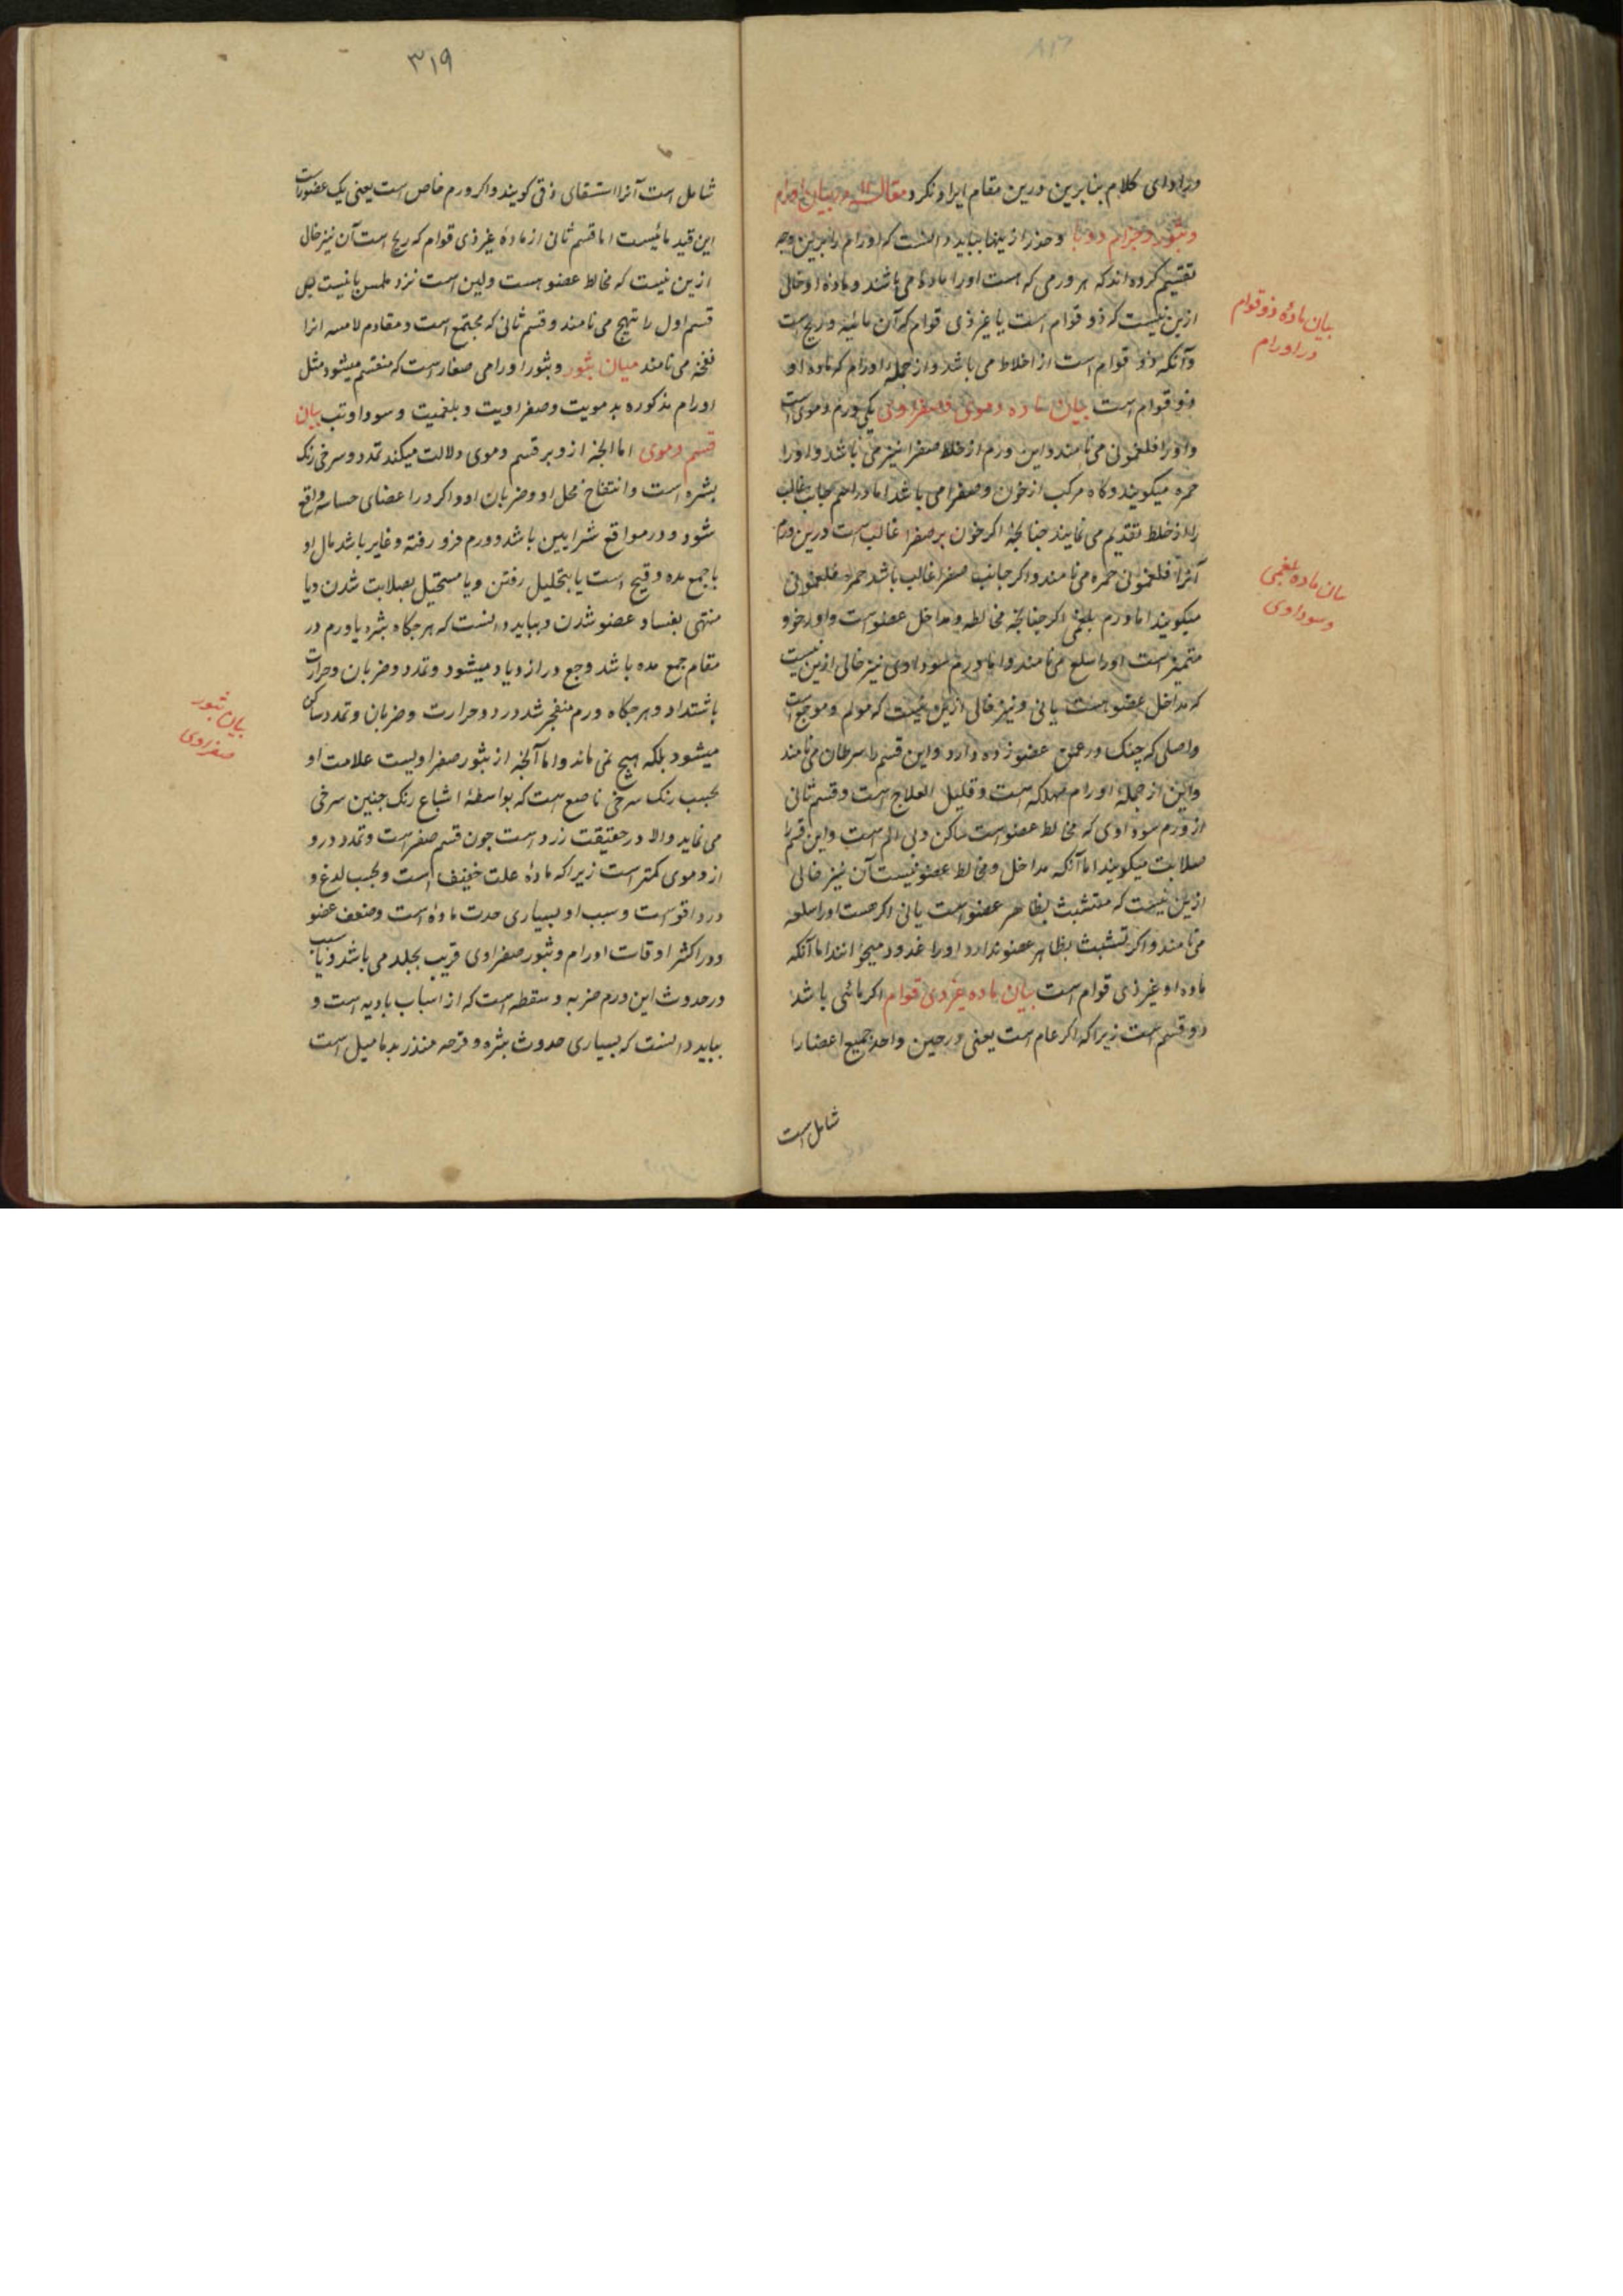 در اوای کلام بنابرین درین مقام ایراد نکرد مقاله ۱۲ در بیان اورام
و بثور و جذام و وبا و حذر ازینها بباید دانست که اورام را برین وجه
تقسیم کرده اند که هر ورمی که هست اورا مادهٔ می باشد و مادهٔ او خالی
ازین نیست که ذو قوام است یا غیر ذی قوام که آن مائیه و ریح است
و آنکه ذو قوام است از اخلاط می باشد و از جمله اورام که ماده او
ذو قوام است بیان ماده دموی و صفراوی یکی ورم دموی است
و اورا فلغمونی می نامند و این ورم از خلط صفرا نیز می باشد و اورا
حمره میکویند و کاه مرکب از خون و صفرا می باشد اما در اسم جانب غالب
را از خلط تقدیم می نمایند چنانچهٔ اکر خون بر صفرا غالب است درین ورم
آنرا فلغمونی حمره می نامند و اکر جانب صفرا غالب باشد حمره فلغمونی
میکویند اما ورم بلغمی اکر چنانچه مخالطه و مداخل عضو است و اورخو و
متمیز است اورا سلع می نامند و اما ورم سوداوی نیز خالی ازین نیست
که مداخل عضو هست یا نی و نیز خالی ازین نیست که مولم و موجع است
و اصلی که چنک در عمق عضو زده دارد و این قسم را سرطان می نامند
و این از جمله اورام مهلکه است و قلیل العلاج است و قسم ثانی
از ورم سوداوی که مخالط عضو است ساکن و بی الم است و این قسم را
صلابت میکویند اما آنکه مداخل و مخالط عضو نیست آن نیز خالی
ازین نیست که متشبث بظاهر عضو است یا نی اکر هست اورا سلعه
می نامند و اکر تشبث بظاهر عضو ندارد اورا غدود میخوانند اما آنکه
ماده او غیر ذی قوام است بیان ماده غیر ذی قوام اکر مائی باشد
دو قسم است زیرا که اکر عام است یعنی در حین واحد جمیع اعضا را
شامل است
بیان مادهٔ ذو قوام
در اورام
بیان ماده بلغمی
و سوداوی
۳۱۹
شامل است آنرا استسقای زقی کویند و اکر ورم خاص است یعنی یک عضو راست
این قید مائیست اما قسم ثانی از مادهٔ غیر ذی قوام که ریح است آن نیز خالی
ازین نیست که مخالط عضو هست و لین است نزد ملمس یا نیست پس
قسم اول را تهیج می نامند و قسم ثانی که مجتمع است و مقاوم لامسه انرا
نفخه می نامند میان بثور و بثور اورامی صغار است که منقسم میشود مثل
اورام مذکوره بدمویت و صفراویت و بلغمیت و سوداوتب بیان
قسم دموی اما آنچه ازو بر قسم دموی دلالت میکند تمدد و سرخی رنک
بشره است و انتفاخ محل او و ضربان او و اکر در اعضای حساسه واقع
شود و در مواقع شرایین باشد و ورم فرو رفته و غایر باشد مال او
با جمع مده و قیح است یا بتحلیل رفتن و یا مستحیل بصلابت شدن و یا
منتهی بفساد عضو شدن و بباید دانست که هرجکاه بثره یا ورم در
مقام جمع مده باشد وجع در ازدیاد میشود و تمدد و ضربان و حرارت
باشتداد و هرجکاه ورم منفجر شد درد و حرارت و ضربان و تمدد ساکن
میشود بلکه هیچ نمی ماند و اما آنچه از بثور صفراویست علامت او
بحسب رنک سرخی ناصع است که بواسطهٔ اشباع رنک جنین سرخی
می نماید والا در حقیقت زرد است چون قسم صفرست و تمدد درو
از دموی کمتر است زیرا که مادهٔ علت خفیف است و بحسب لدغ و
درد اقوست و سبب او بسیاری حدت مادهٔ است و ضعف عضو
و در اکثر اوقات اورام و بثور صفراوی قریب بجلد می باشد و سبب
در حدوث این ورم ضربه و سقطه است که از اسباب بادیه است و
بباید دانست که بسیاری حدوث بثره و قرحه منذر بدمامیل است
بیان بثور
صفراوی